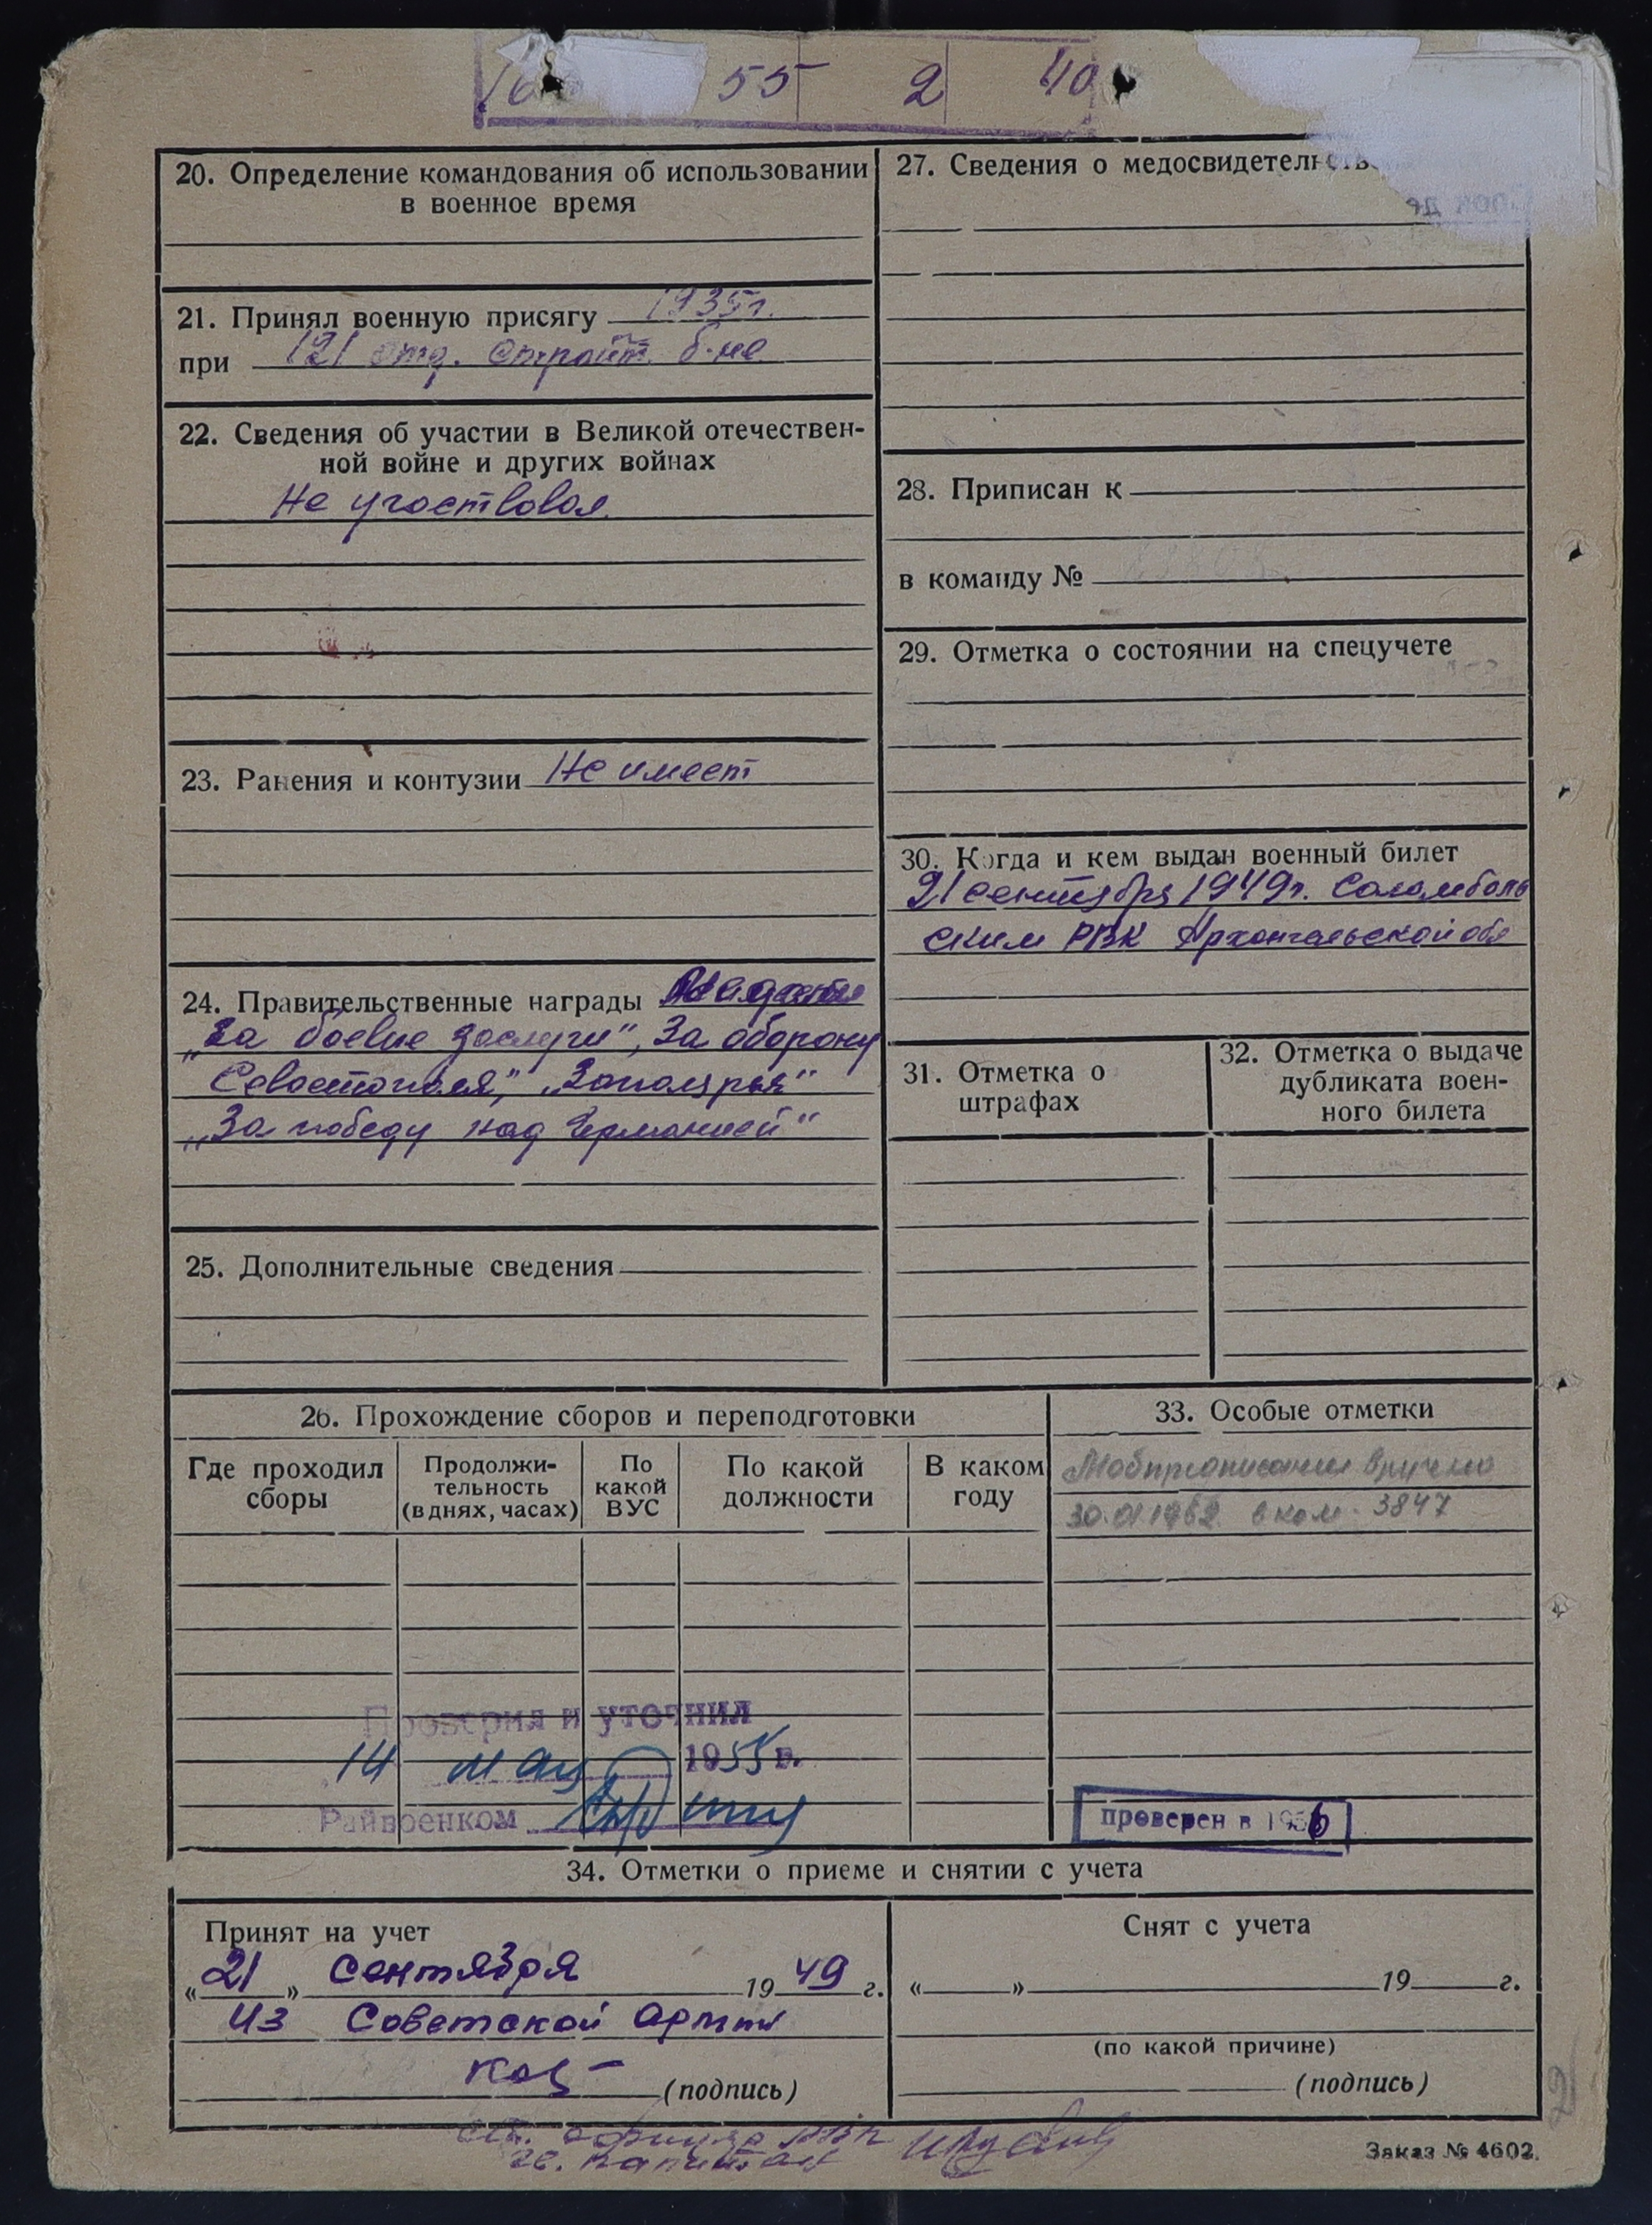 55 2 40
20. Определение командования об использовании
в военное время
21. Принял военную присягу 1935г.
при 121 отд. строит. б-не
22. Сведения об участии в Великой отечествен-
ной войне и других войнах
Не участвовал
23. Ранения и контузии Не имеет
24. Правительственные награды Медали
„За боевые заслуги", За оборону
Севастополя", „Заполярья"
„За победу над Германией"
25. Дополнительные сведения
27. Сведения о медосвидетельств
28. Приписан к
в команду №
29. Отметка о состоянии на спецучете
30. Когда и кем выдан военный билет
21 сентября 1949г. Соломболь
ским РВК Архангельской обл
31. Отметка о
штрафах
32. Отметка о выдаче
дубликата воен-
ного билета
26. Прохождение сборов и переподготовки
Где проходил
сборы
Продолжи-
тельность
(в днях, часах)
По
какой
ВУС
По какой
должности
В каком
году
33. Особые отметки
Мобпредписание вручено
в ком. 3847
Проверил и уточнил
14 мая 1955 г.
Райвоенком
проверен в 1956
34. Отметки о приеме и снятии с учета
Принят на учет
«21» Сентября 1949 г.
из Советской Армии
(подпись)
Снят с учета
« » 19 г.
(по какой причине)
(подпись)
ст. офицер РВК
капитан
Заказ № 4602.
2